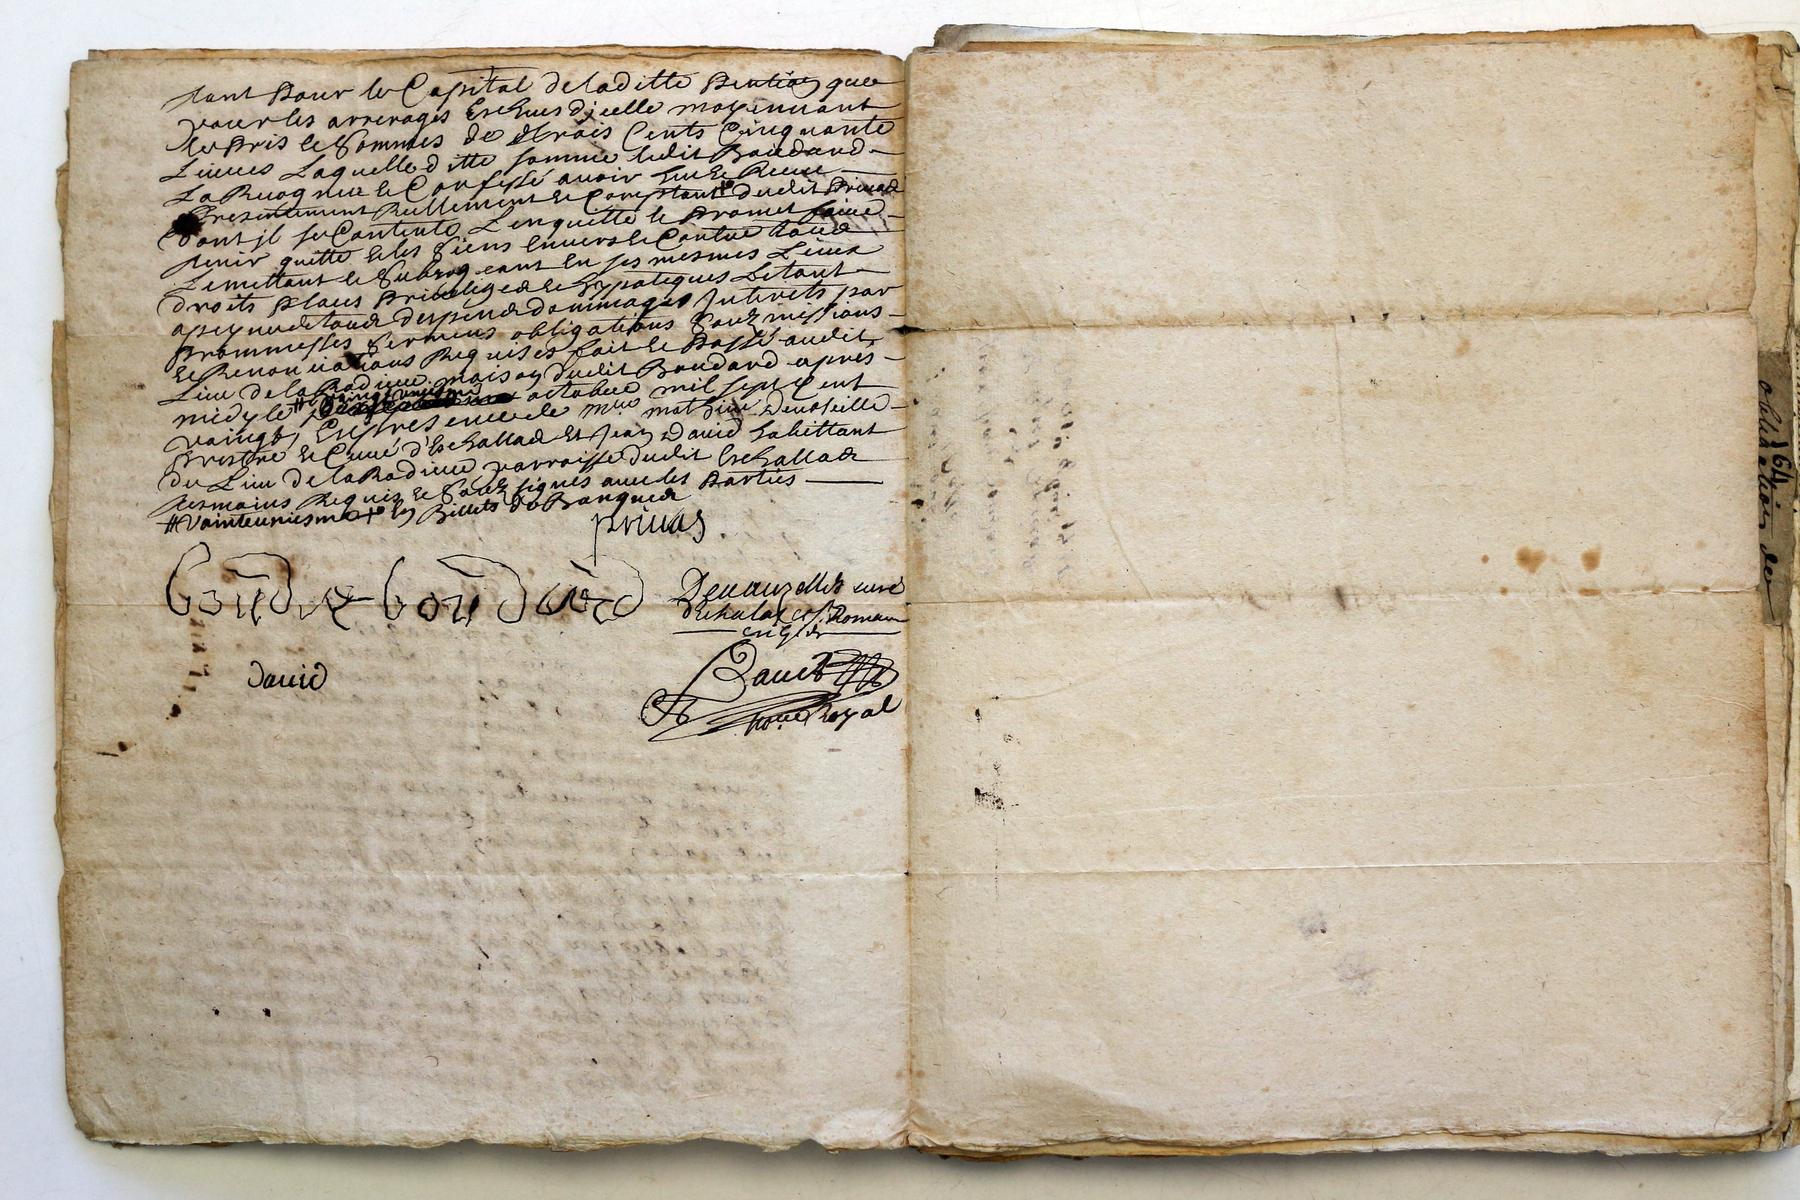 tant Pour le Capital de laditte Pention que
pour les arrerages Escheus d'icelle moyennant
le Pris le Somme de trois Cents Cinquante
Liures Laquelle ditte somme ledit Boudard
La Recogneue le Confessé auoir heue Receue
Presentement Reellement le Comptant dudit Priuas
dont jl se Contente L'enquitte le Promet faire
tenir quitte le les Siens enuers le Contre tous
Lemettant le Subrogeant En ses mesmes Lieux
droits Places Priuileges le hypoteques Letant
a peyne de tous despens dommages Interets par
Prommesses Sermens obligations Soubmissions
le Renontiations Requises fait le Passé audit
Lieu de la Radieue maison dudit Boudard apres
midy le # octobre mil sept Cent
vaingt, En presence de mre Denoseille
Prestre le Curé d'Eschallas Et Jean Dauid habittant
du Lieu de la Radieue parroisse dudit Eschallas
tesmoins Requis le Soubsignes auec les Parties
# vainteuniesme + en Billets de Banque
priuas
Boudard
curé
d'Echalas et St Romain
en gier
Dauid
nore Royal
1641
obligation de